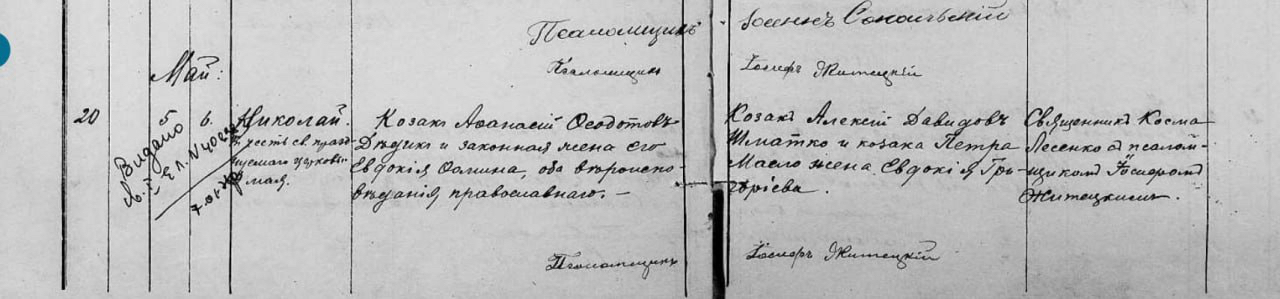 Псаломщикъ Іосифъ Сокольскій
Май:
Псаломщикъ Іосифъ Житецкій
20 5 6. Николай.
въ честь св. празд-
нуемаго 9
мая.
Видано
Козакъ Аѳанасій Ѳеодотовъ
Дѣдикъ и законная жена его
Евдокія Ѳомина, оба вѣроиспо-
вѣданія православнаго. —
Козакъ Алексій Давидовъ
Шматко и козака Петра
Масло жена Евдокія Гри-
горіева.
Священникъ Косма
Лесенко съ псалом-
щикомъ Іосифомъ
Житецкимъ.
Псаломщикъ Іосифъ Житецкій